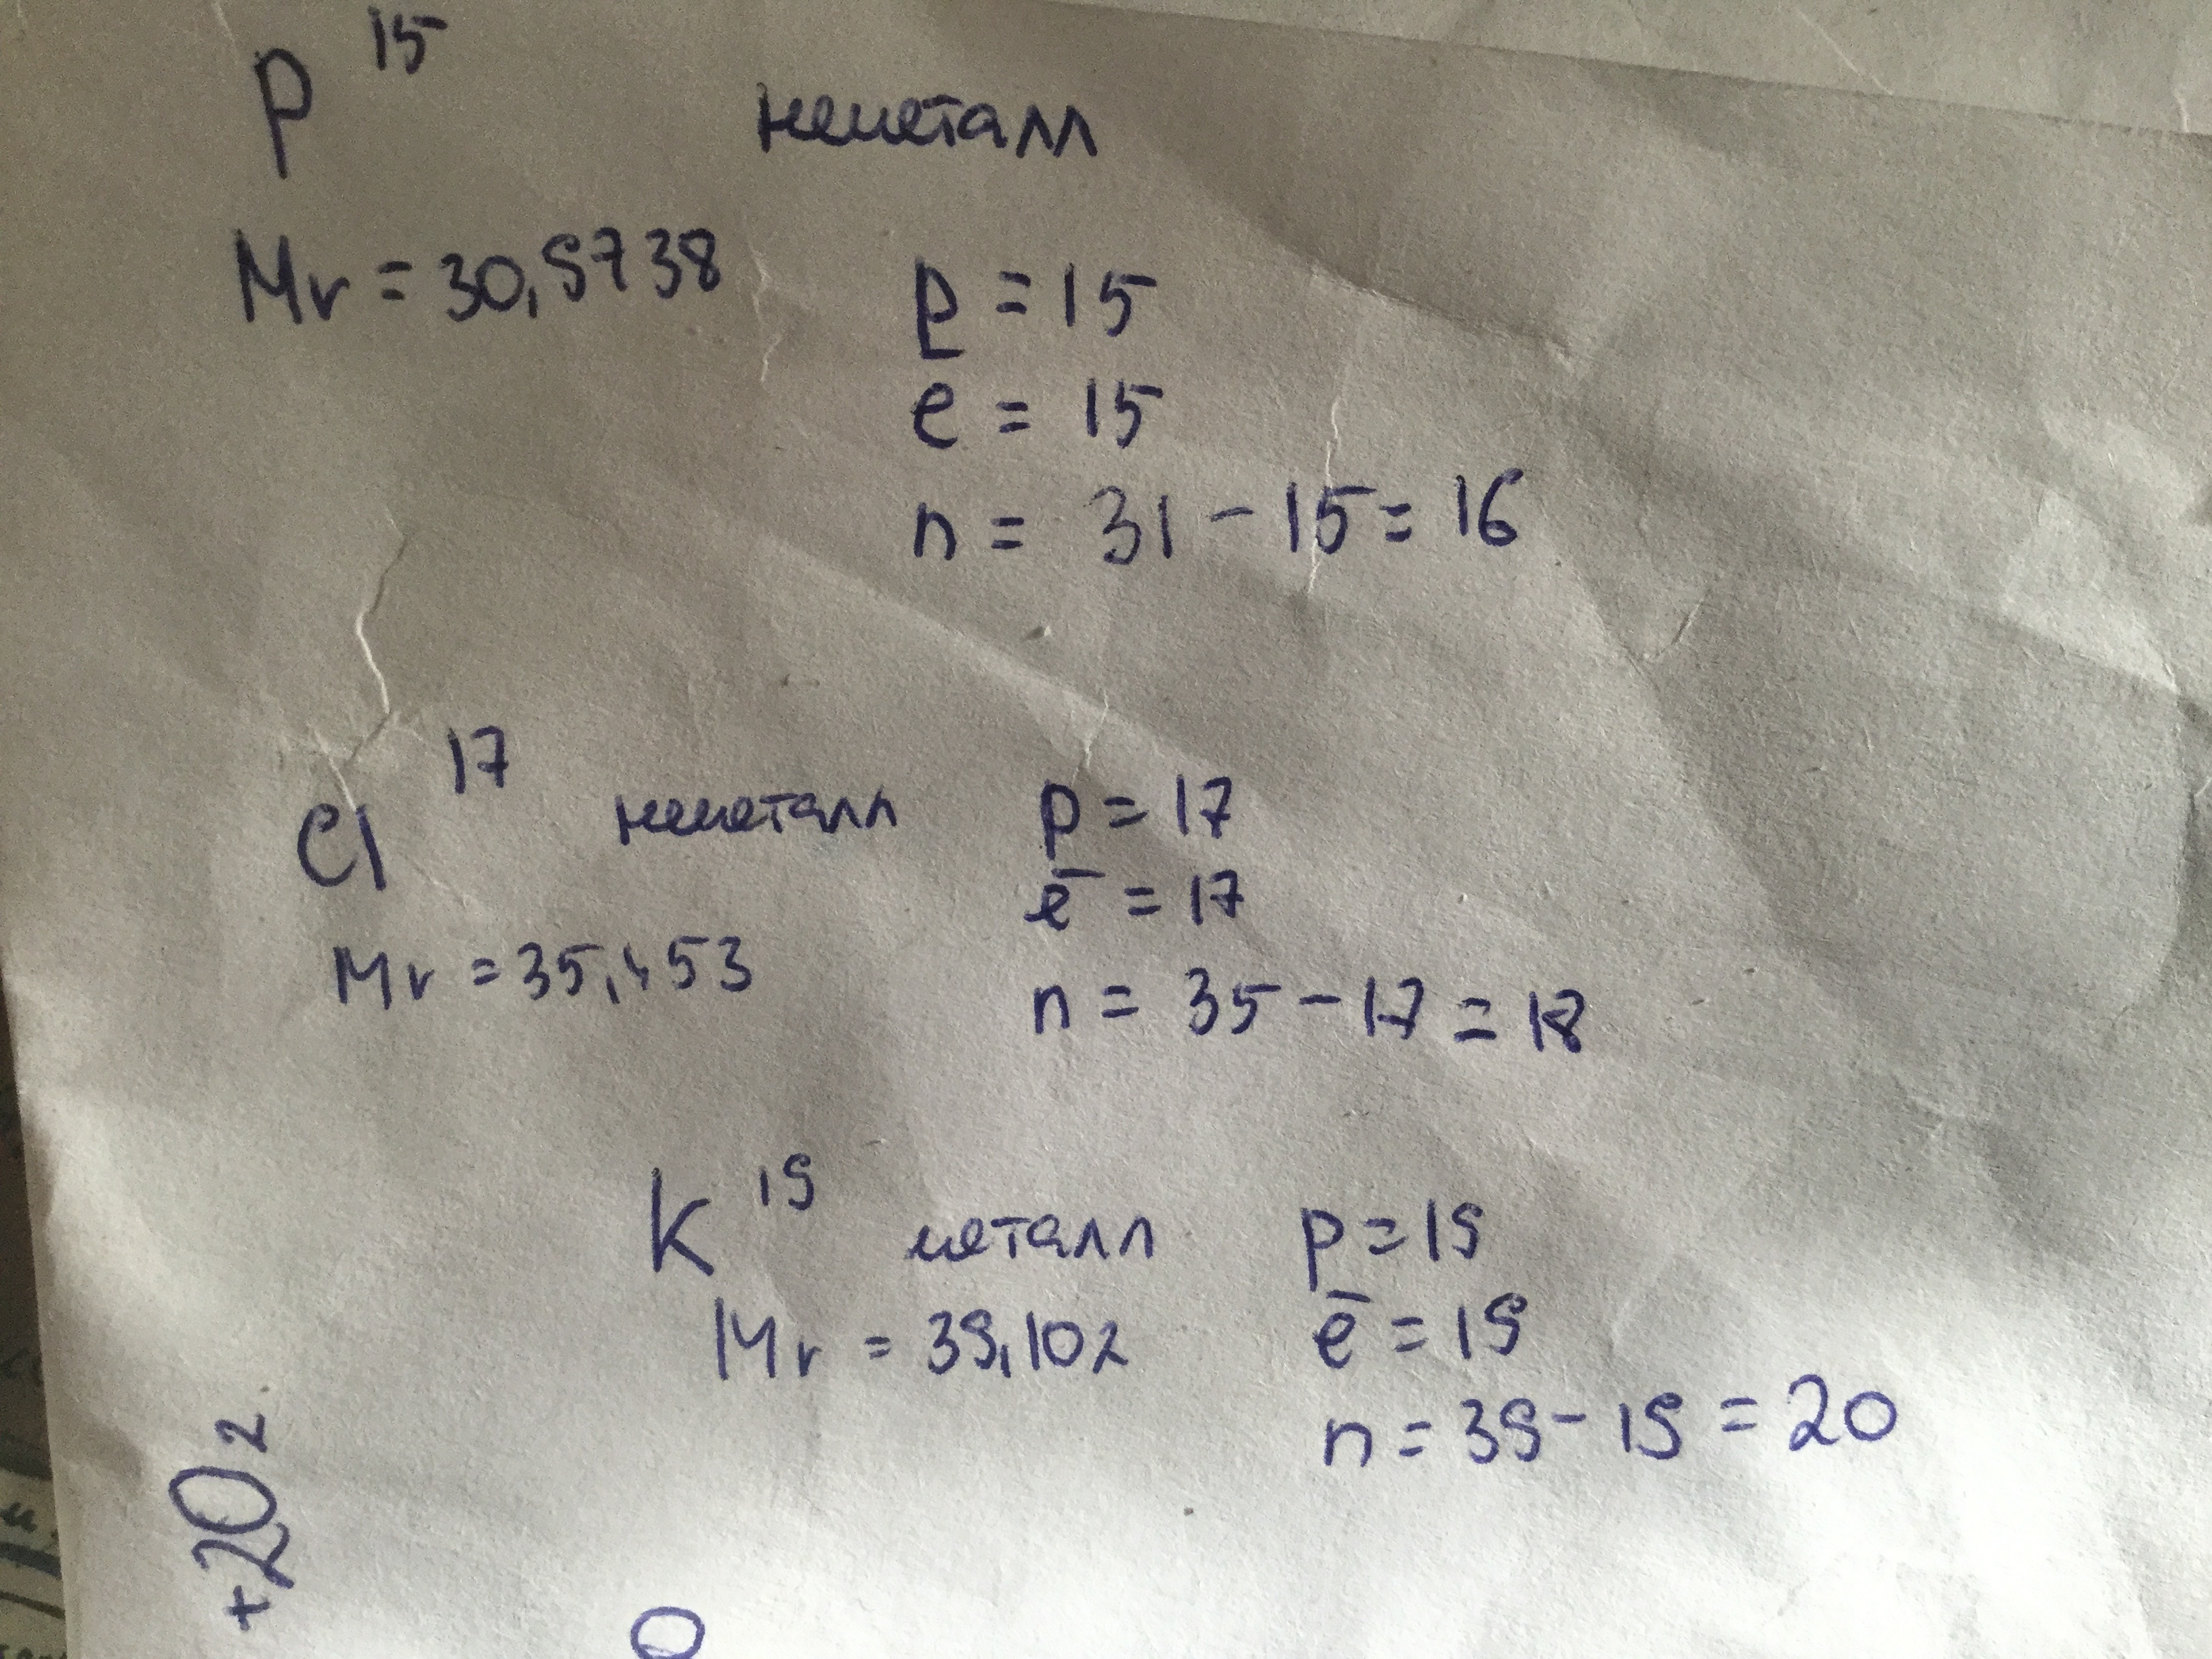 P 15 неметалл
Mr = 30,9738
p = 15
e = 15
n = 31 - 15 = 16
Cl 17 неметалл
p = 17
e̅ = 17
Mr = 35,453
n = 35 - 17 = 18
K 19 металл
p = 19
Mr = 39,102
e̅ = 19
n = 39 - 19 = 20
+2O2